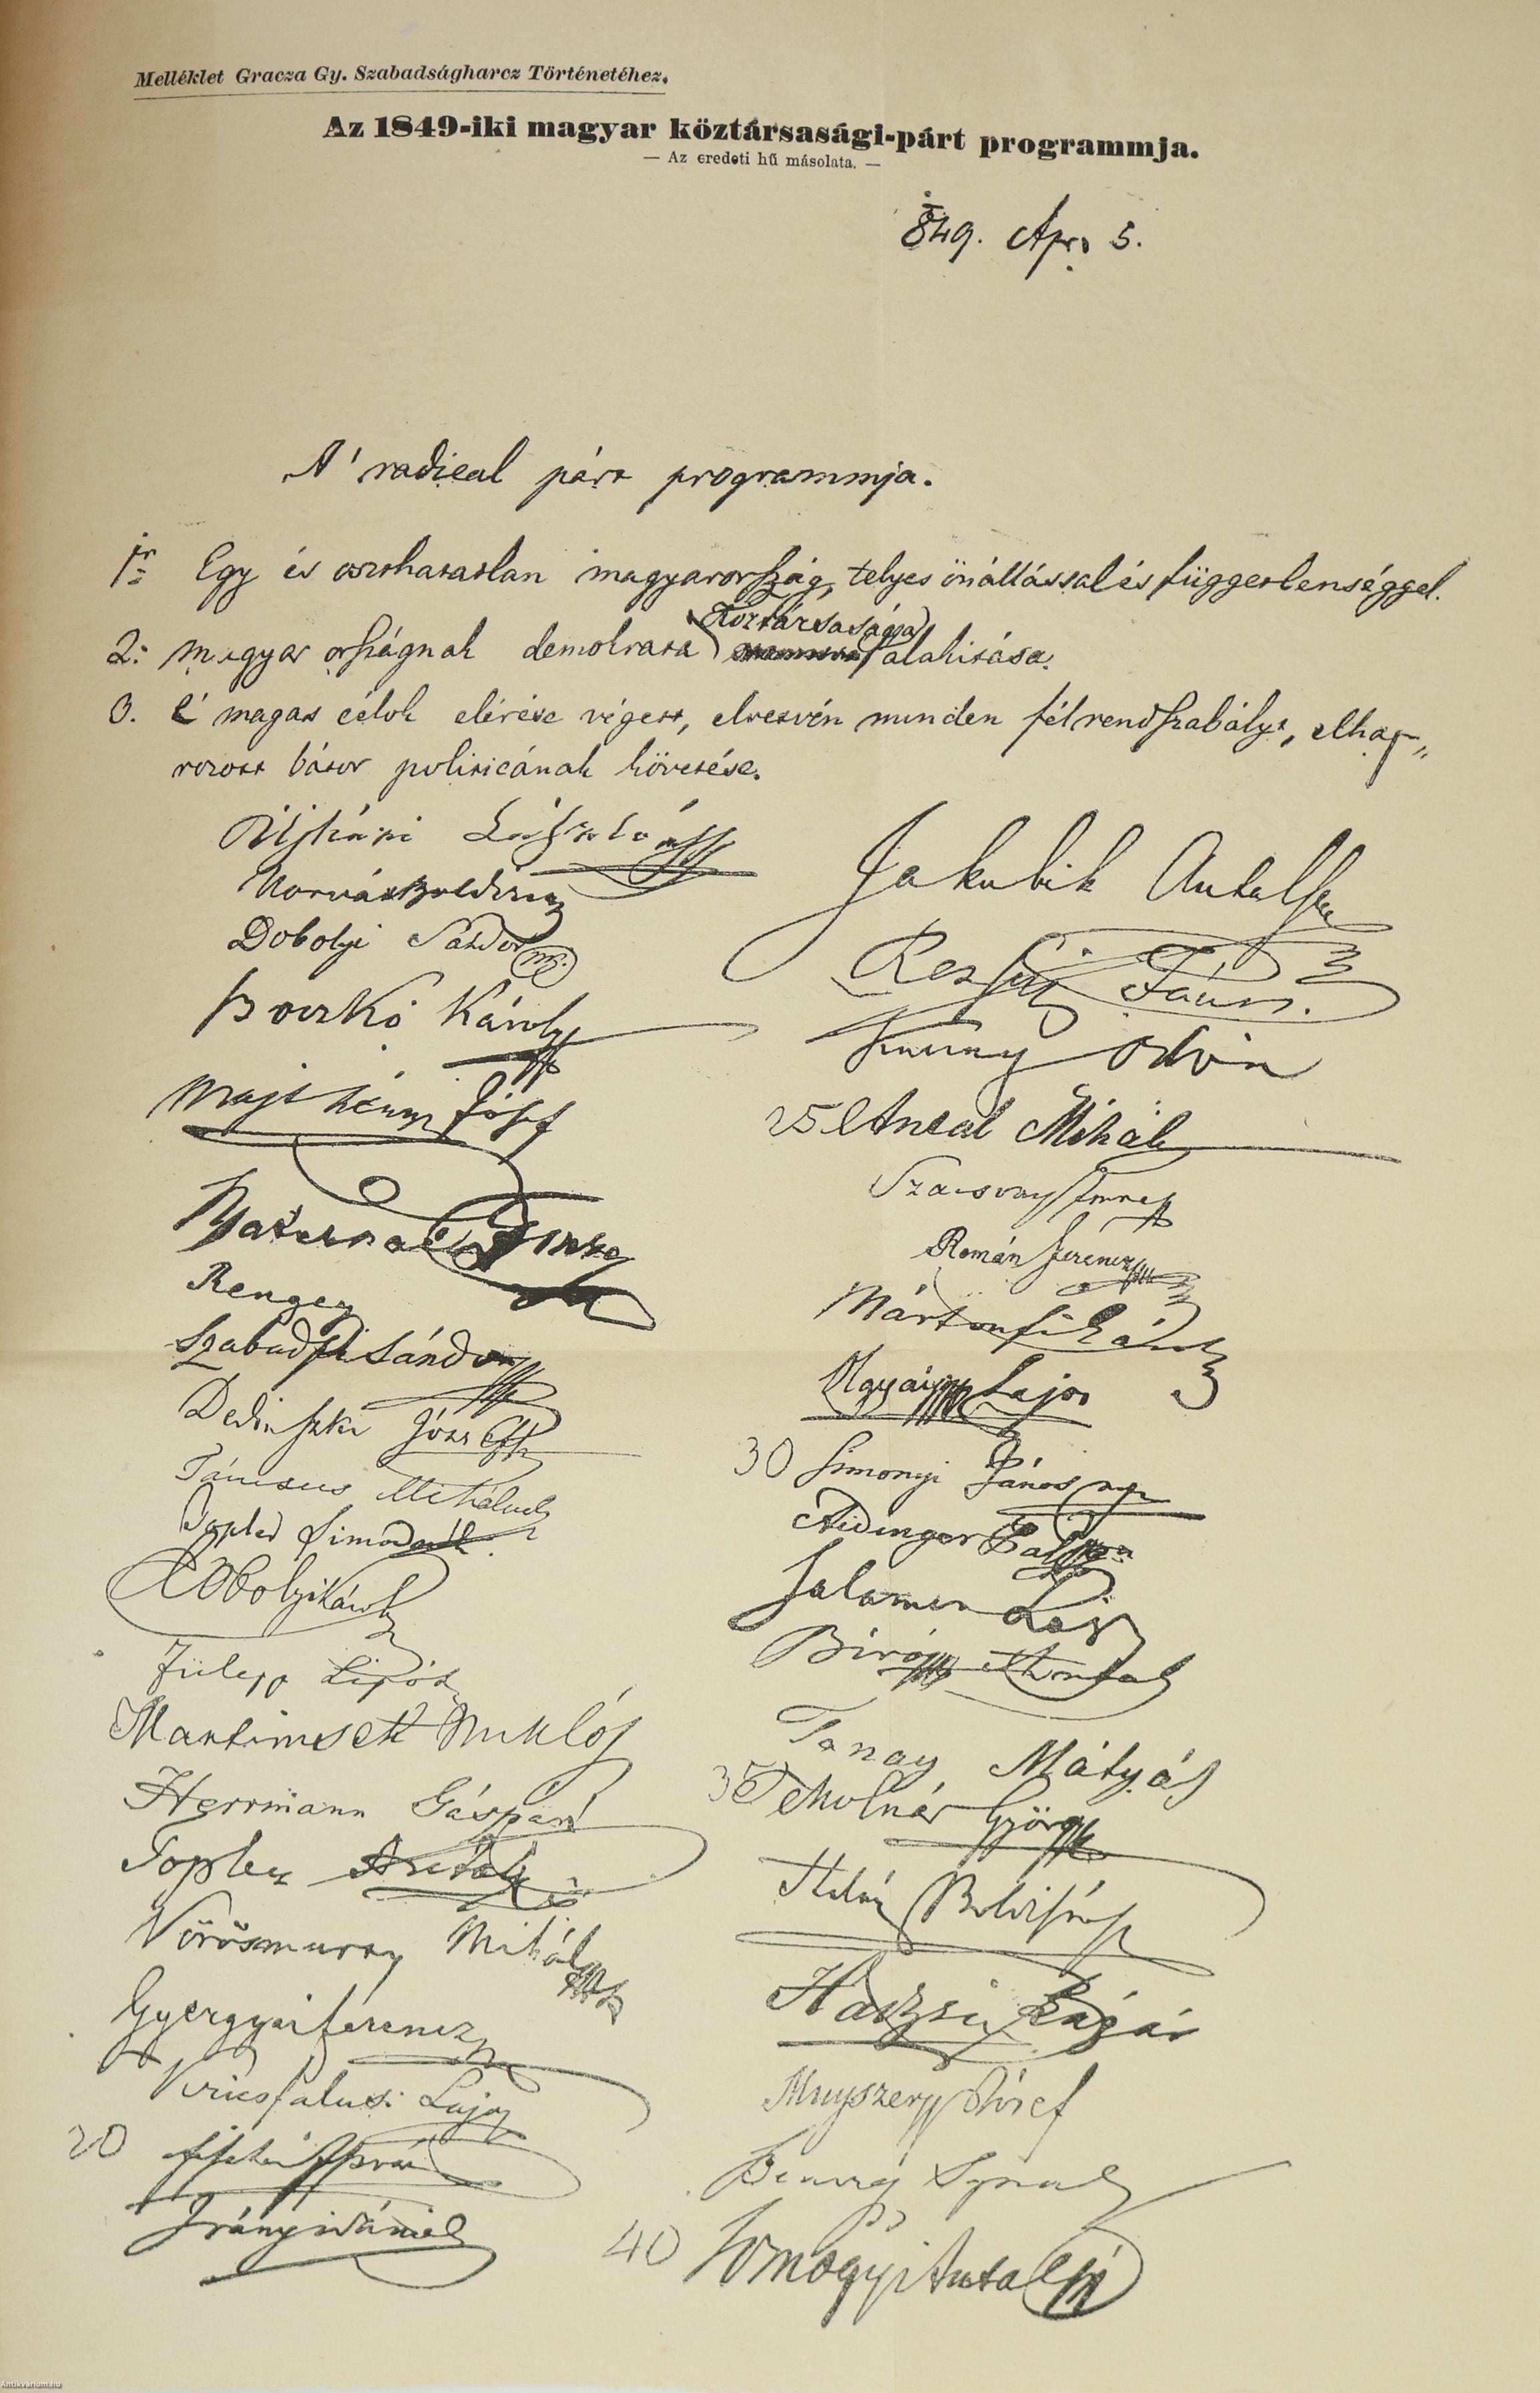 Melléklet Gracza Gy. Szabadságharcz Történetéhez.
Az 1849-iki magyar köztársasági-párt programmja.
— Az eredeti hű másolata. —
849. Apr. 5.
A' radical párt programmja.
1ör Egy és oszthatatlan magyarország, telyes önállással és függetlenséggel.
köztársasággá
2: magyar országnak demokrata alakitása.
3. E' magas célok elérése végett, elvetvén minden félrendszabályt, elhat„
rozott bátor politicának követése.
Ujházi László
Horvát Boldizsár
Dobolyi Sándor
Boczkó Károly
Majthényi József
Madarász
Rengey
Szabadfi Sándor
Dedinszki József
Táncsics Mihály
Topler Simon
Kobolyi Károly
Fülepp Lipót
Martinsek Miklós
Herrmann Gáspár
Topler Antal
Vörösmarty Mihály
Gyergyai ferencz
Kricsfalusi Lajos
20
Irányi Dániel
Jakubik Antal
Reszfü János
Antal Mihály
25
Szacsvay Imre
Román Ferencz
Mártonfi Károly
Olgyay Lajos
30 Simonyi János
Aidinger
Salamon Lajos
Biró Antal
Tanay Mátyás
35 Molnár György
Halász Boldizsár
Hadzsi Lázár
József
Ignácz
40 Somogyi Antal
Antikvarium.hu